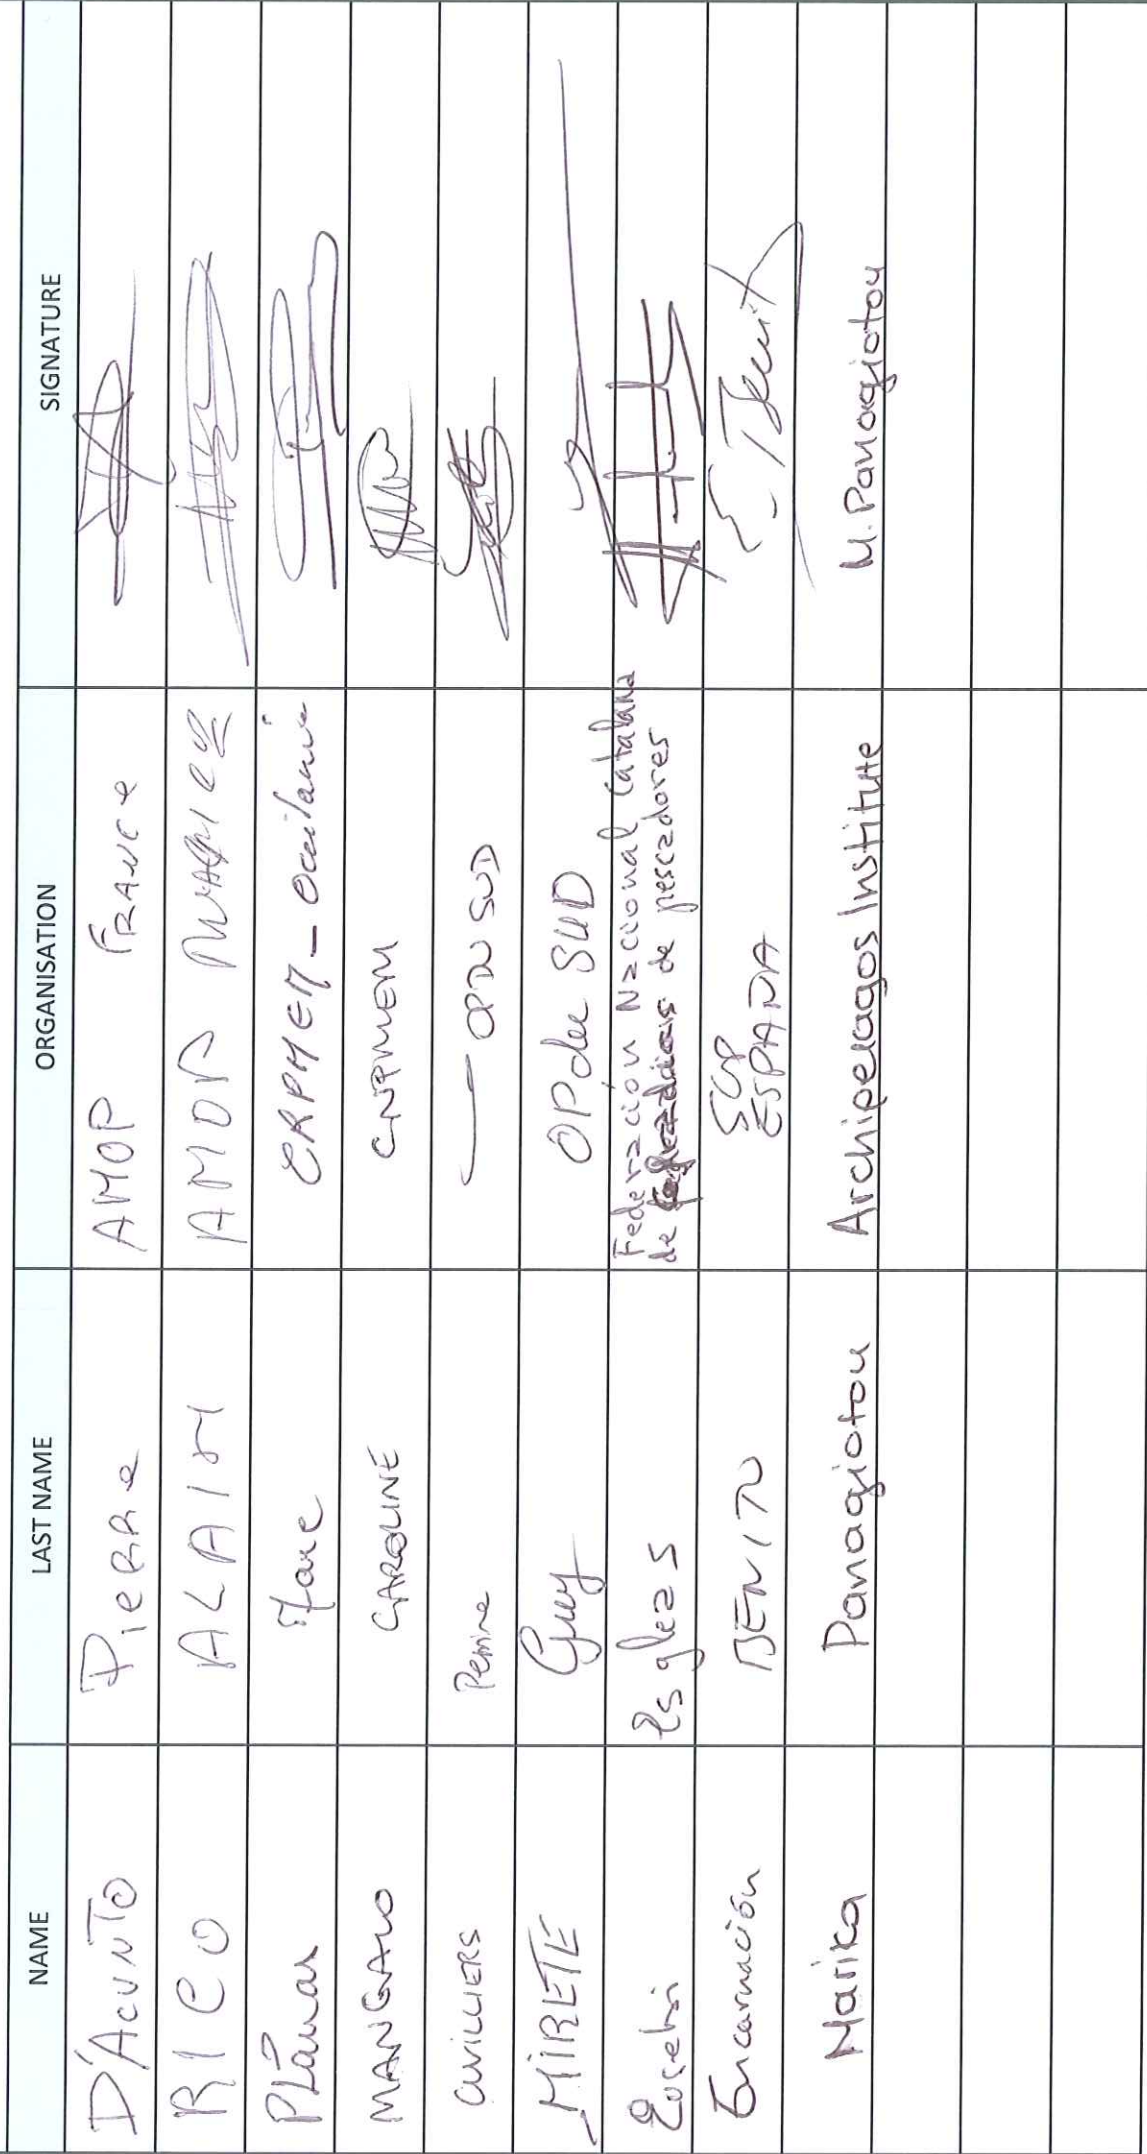 NAME LAST NAME ORGANISATION SIGNATURE
D'ACUNTO PIERRE AMOP FRANCE
RICO ALAIN AMOP
PLanas Marc CRPMEM - Occitanie
MANGALO CAROLINE CNPMEM
CUVILLIERS Perrine OPDU SUD
MIRETE Guy OP du SUD
Eusebi Esgleas Federación Nacional Catalana
de de pescadores
Encarnación BENITO SGP
ESPAÑA
Marika Panagiotou Archipelagos Institute M. Panagiotou